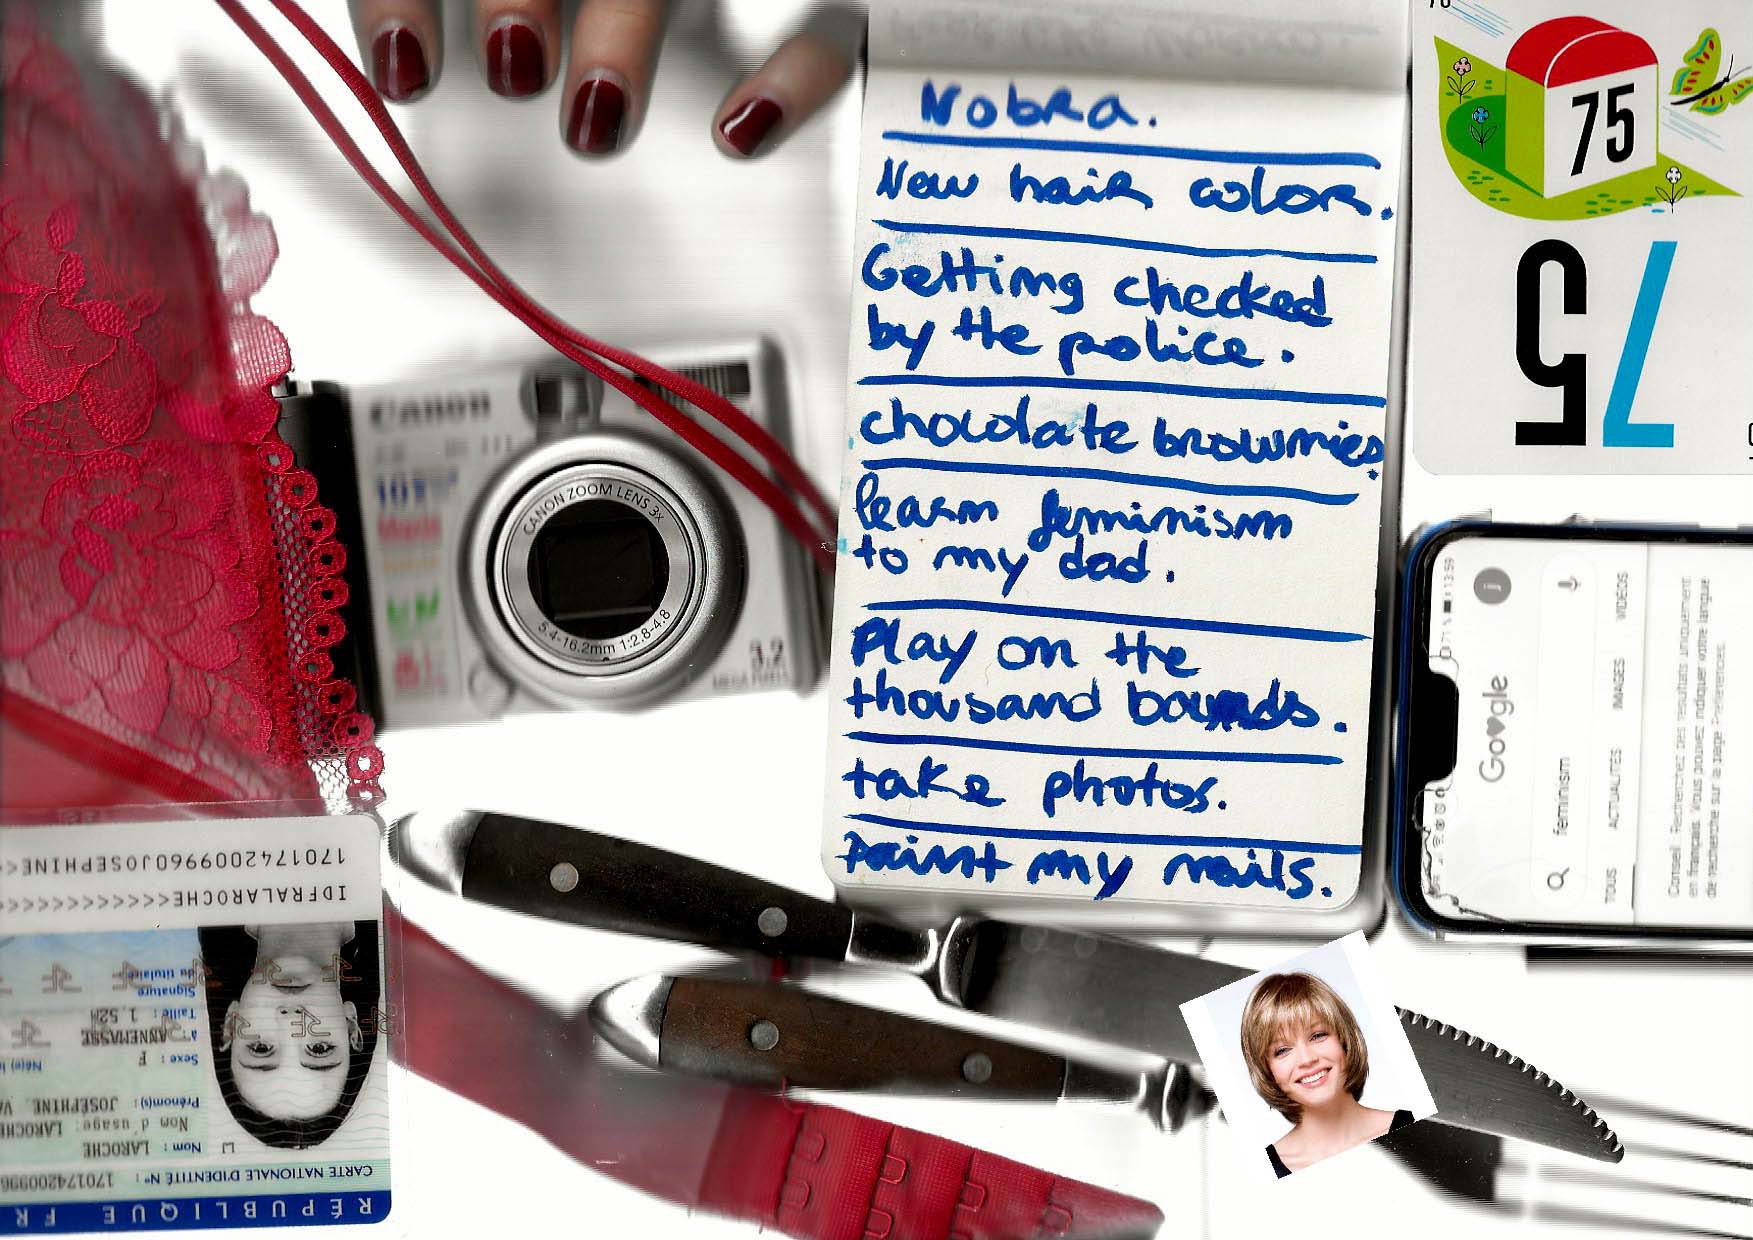 Nobra.
New hair color.
Getting checked
by the police.
chocolate brownies.
learn feminism
to my dad.
Play on the
thousand bounds.
take photos.
Paint my nails.
75
75
Canon
CANON ZOOM LENS 3x
5.4-16.2mm 1:2.8-4.8
3.2
MEGA PIXELS
13:59
Google
feminism
TOUS ACTUALITÉS IMAGES VIDÉOS
Conseil : Recherchez des résultats uniquement
en français. Vous pouvez indiquer votre langue
de recherche sur la page Préférences.
RÉPUBLIQUE FR
CARTE NATIONALE D'IDENTITÉ N° : 170174200996
Nom : LAROCHE
Nom d'usage: LAROCHE
Prénom(s) : JOSEPHINE
Sexe : F
à ANNEMASSE
Taille : 1,52M
Signature
du titulaire
IDFRALAROCHE<<<<<<<<<<<<
1701742009960JOSEPHINE<